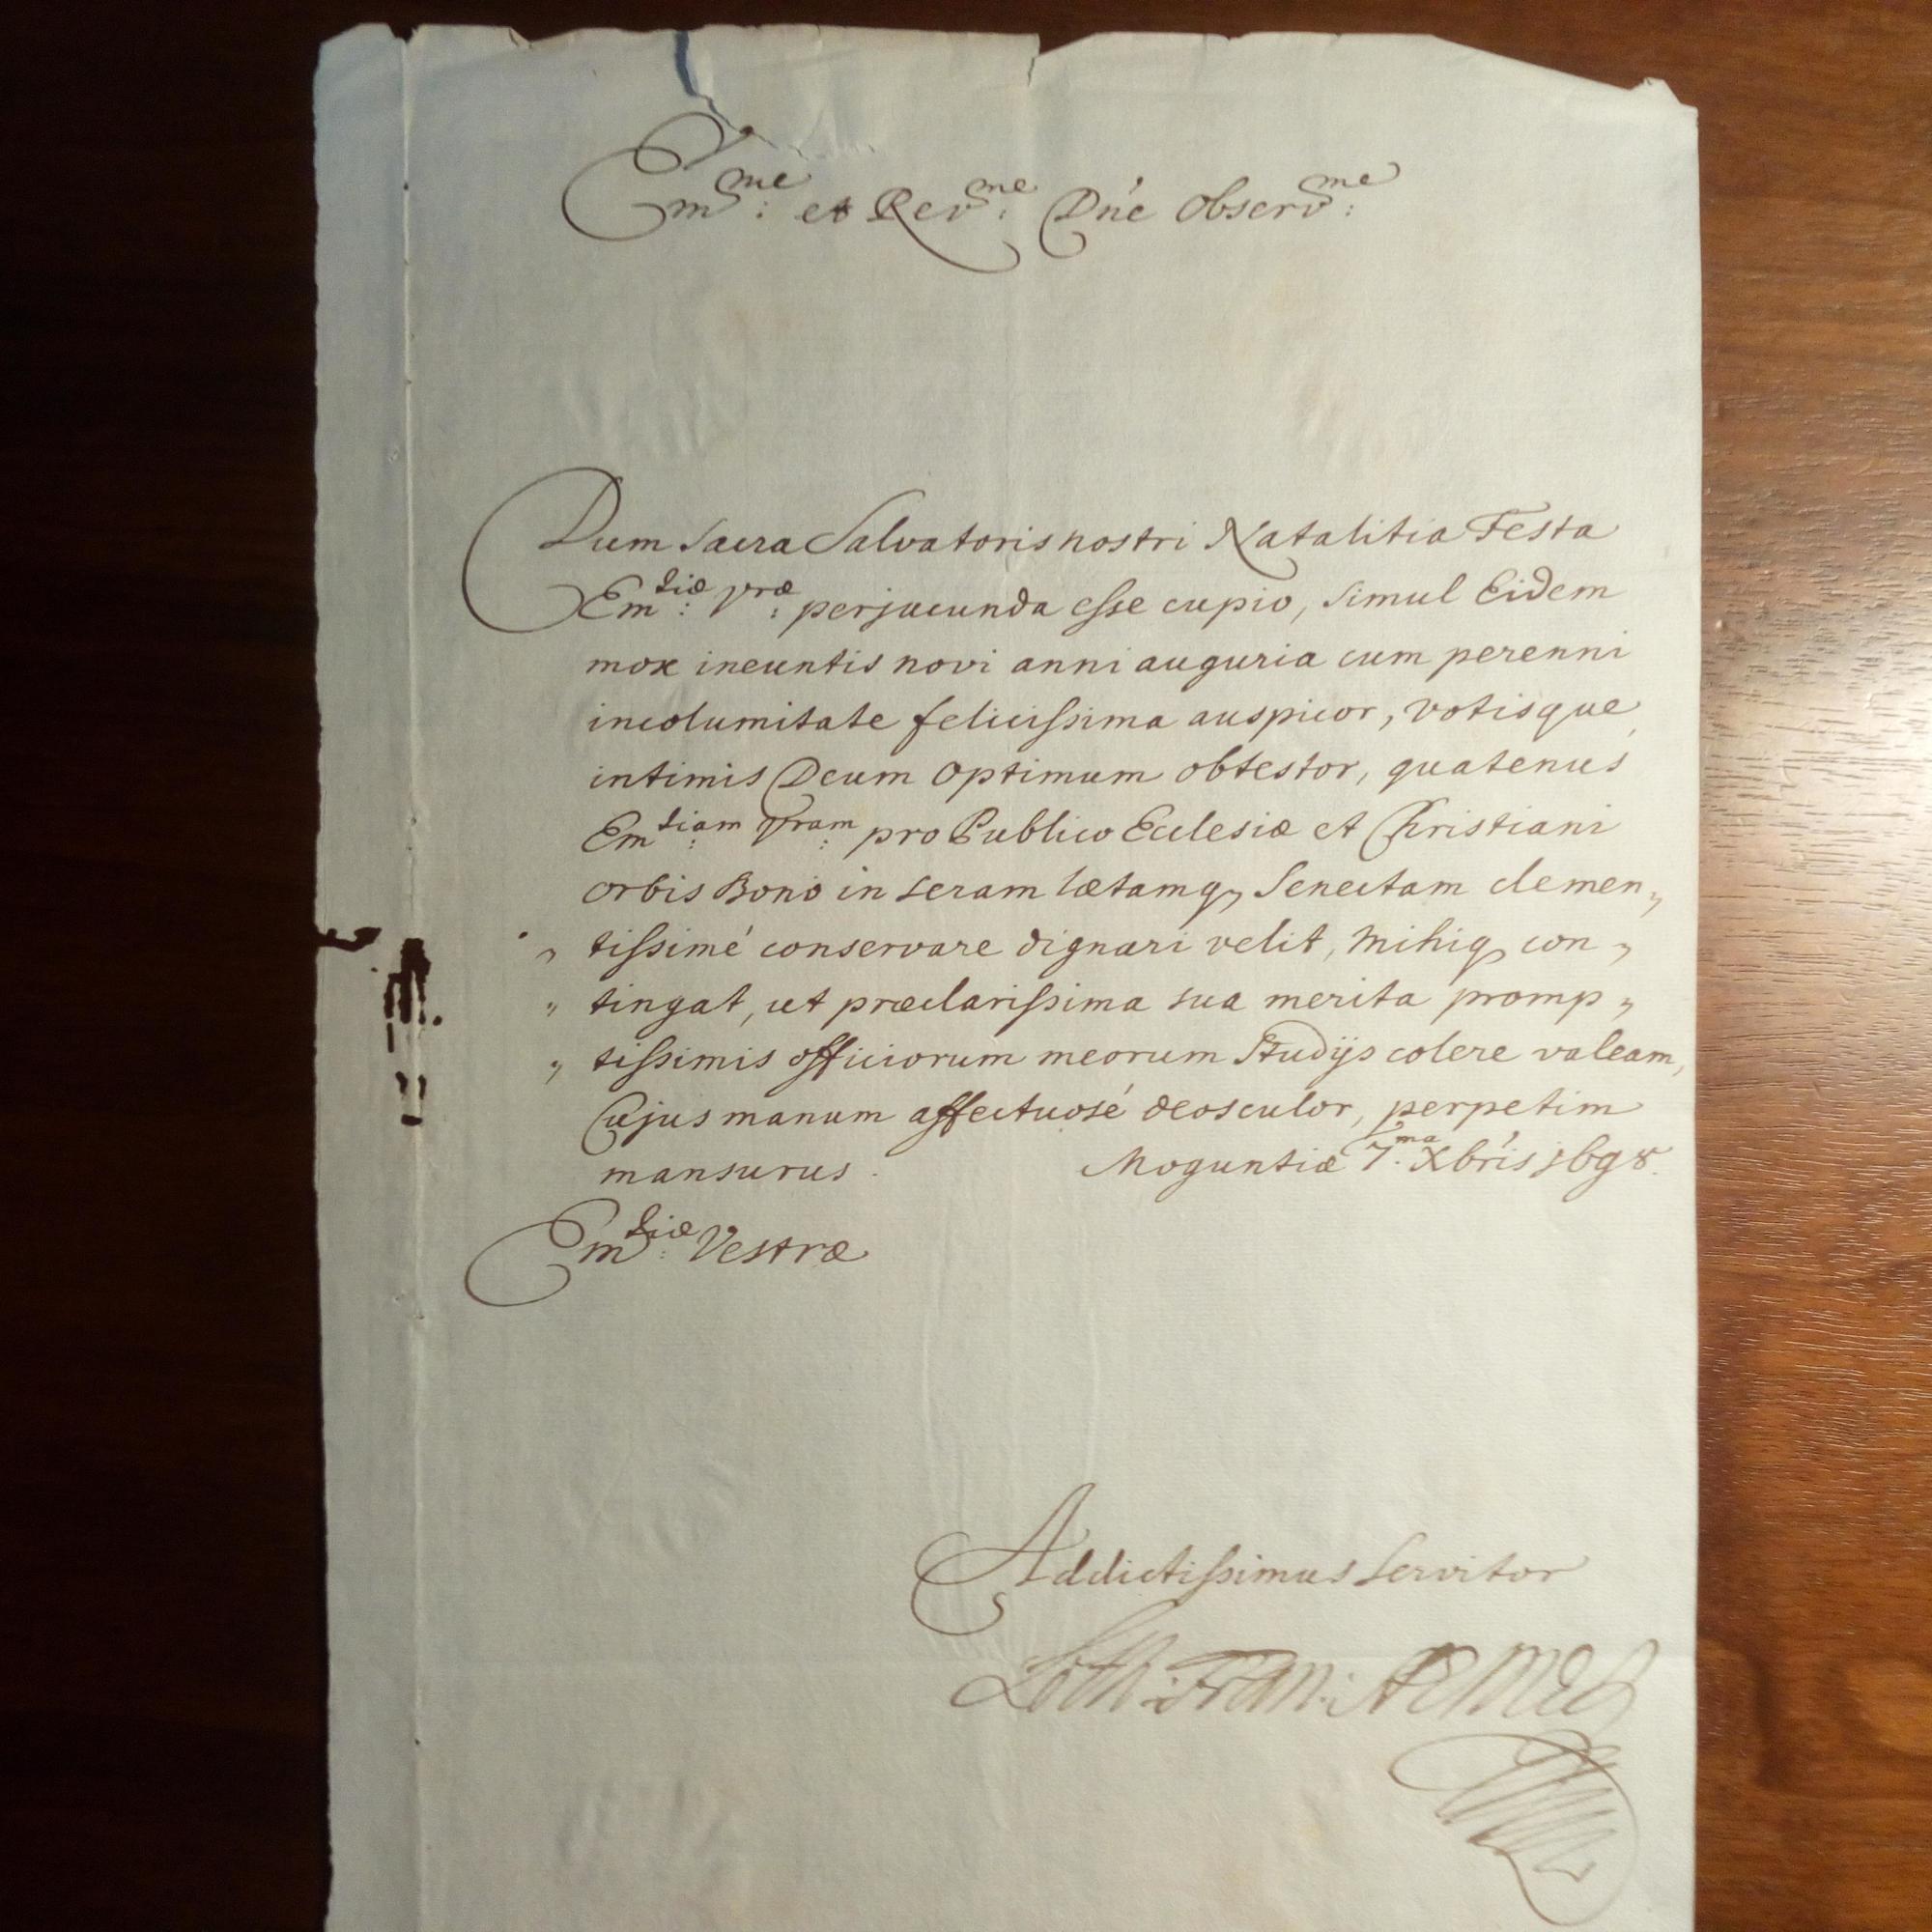 Em̅me: et Revme: Dn̅e Observme:
Dum Sacra Salvatoris nostri Natalitia Festa
Emtiæ: Vræ: perjucunda esse cupio, simul Eidem
mox ineuntis novi anni auguria cum perenni
incolumitate felicissima auspicor, votisque
intimis Deum Optimum obtestor, quatenus
Emtiam: Vram: pro Publico Ecclesiæ et Christiani
Orbis Bono in seram lætamq, Senectam clemen„
„ tissimé conservare dignari velit, mihiq, con„
„ tingat, ut præclarissima sua merita promp„
„ tissimis officiorum meorum Studijs colere valeam,
Cujus manum affectuosé deosculor, perpetim
mansurus. Moguntiæ 7.ma Xbris 1698.
Emtiæ: Vestræ
Addictissimus Servitor
Loth: Fran: